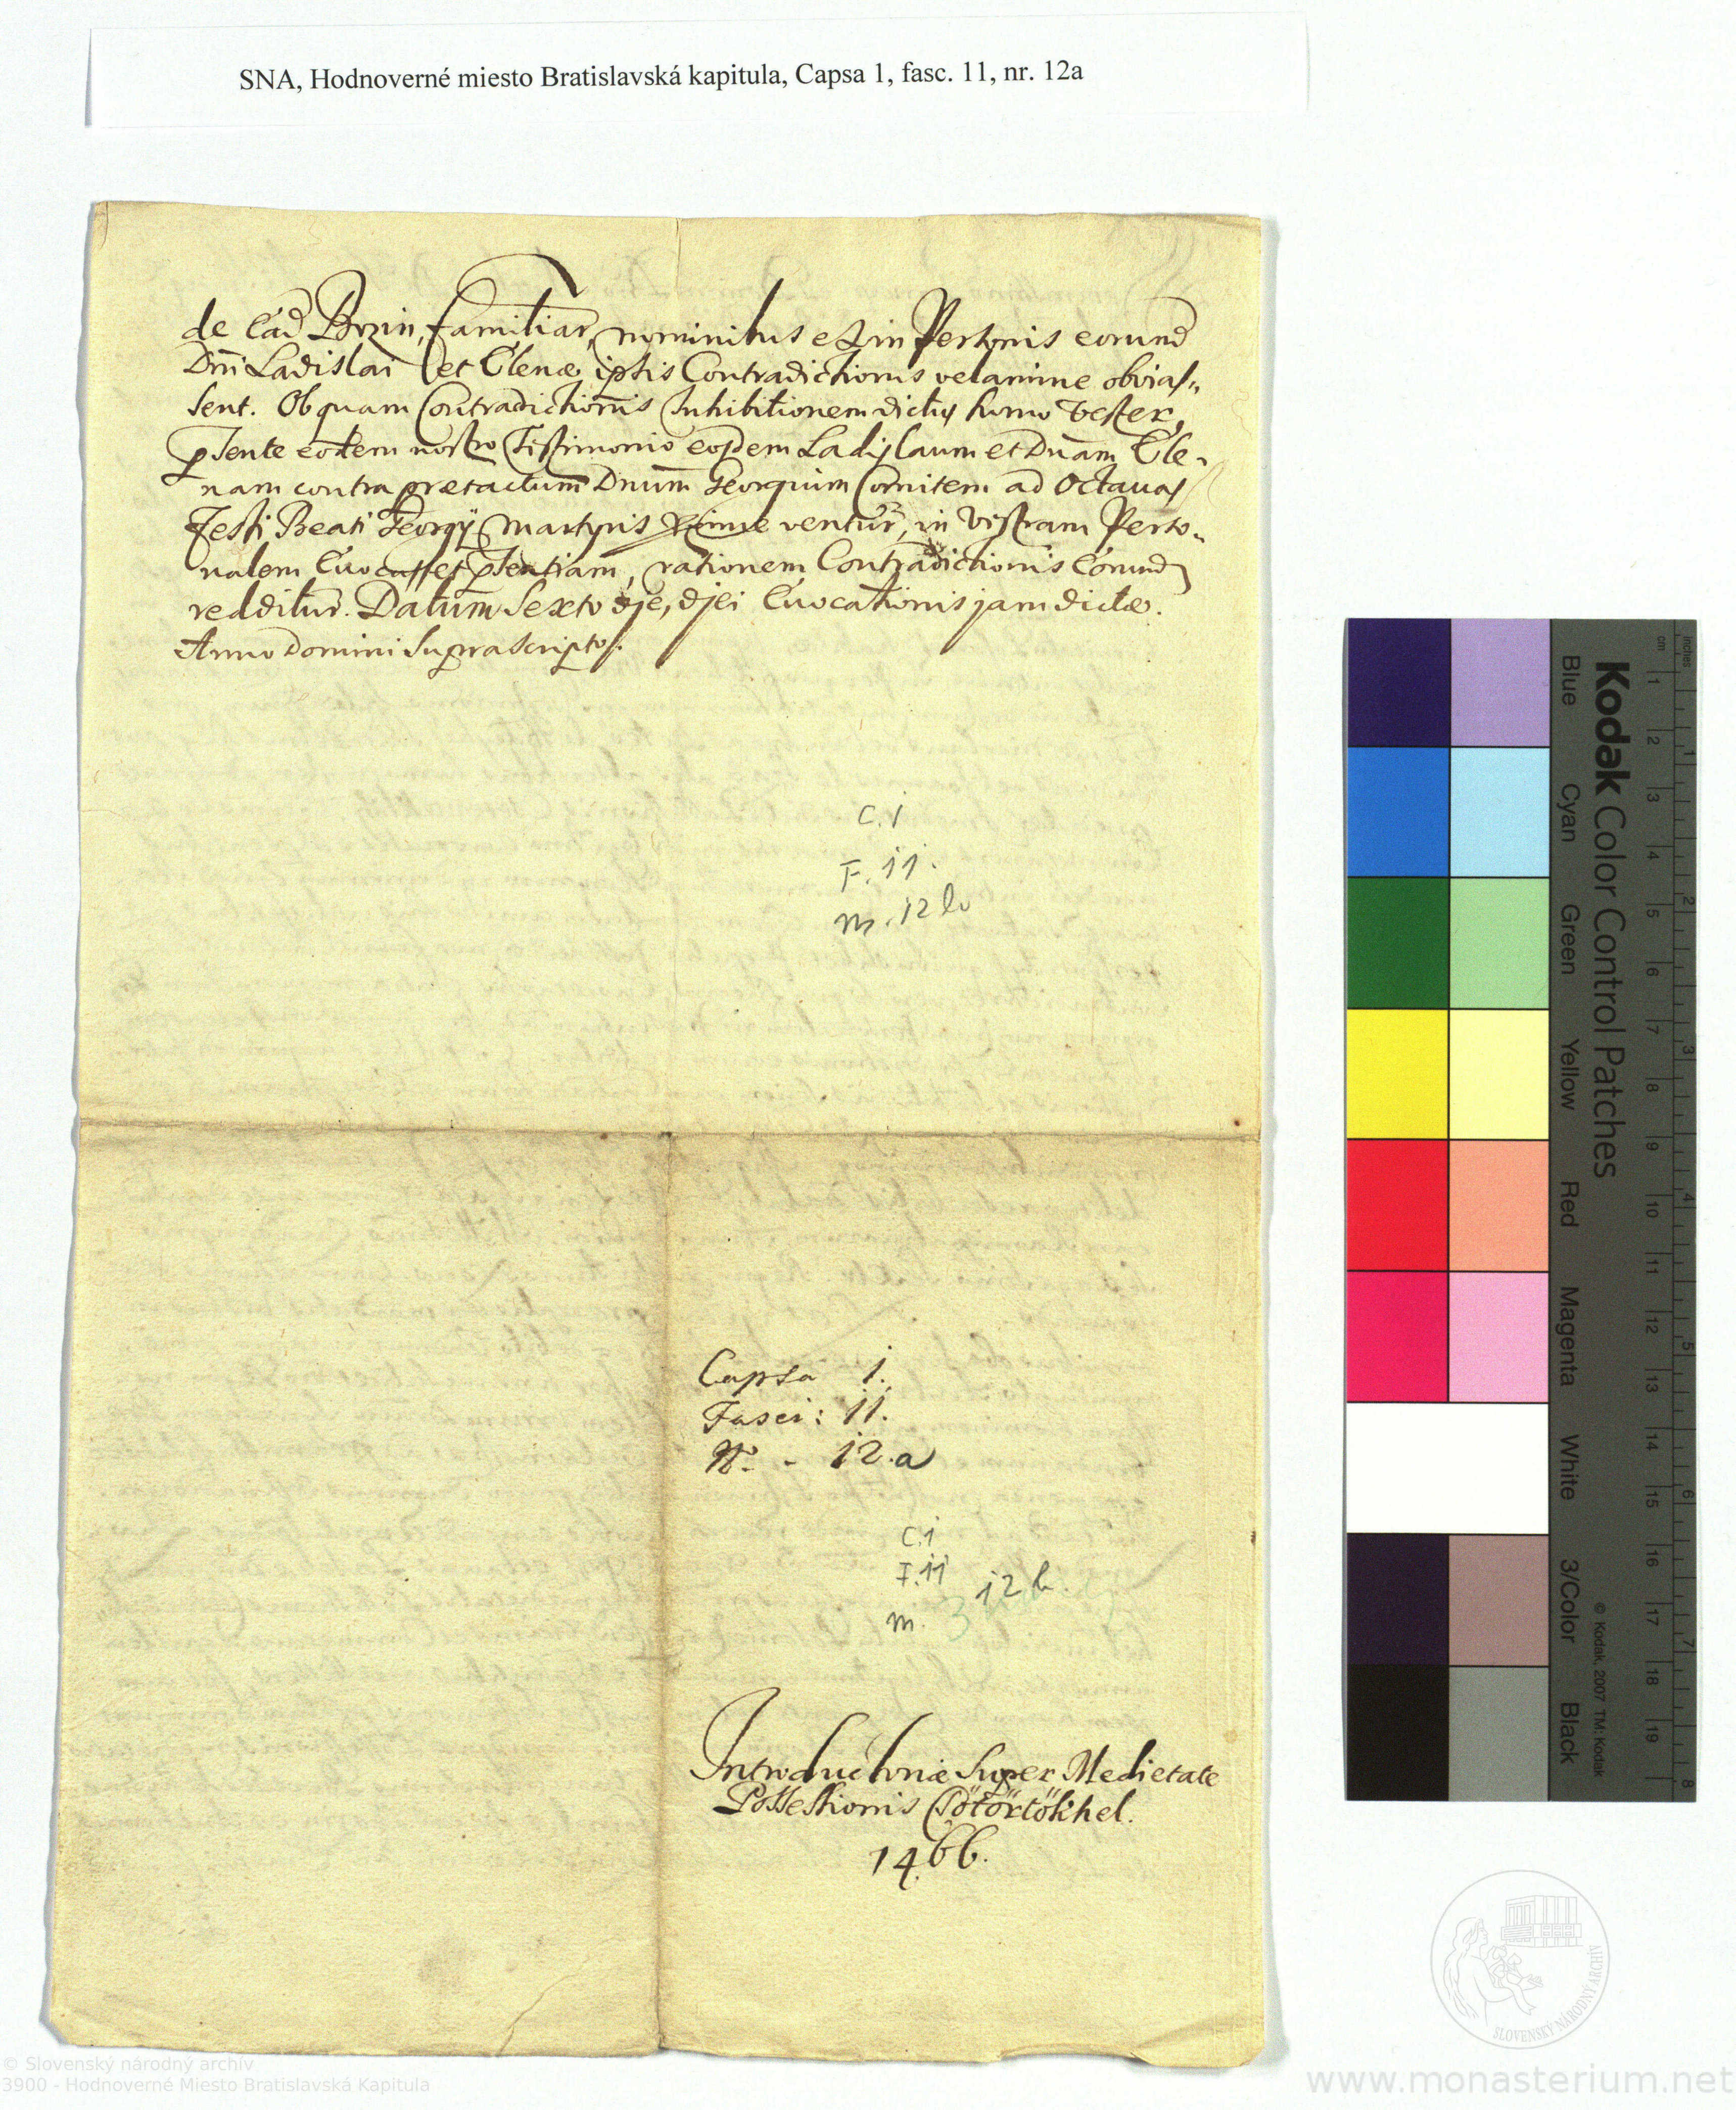 SNA, Hodnoverné miesto Bratislavská kapitula, Capsa 1, fasc. 11, nr. 12a
de Eád Bozin, familiar, nominibus et in Personis eorund
Dni Ladislai et Elenæ ipsis Contradictionis velamine obvias„
sent. Ob quam Contradictionis Inhibitionem dictus homo vester,
pſente eodem nostro Testimonio eosdem Ladislaum et Dnam Ele„
nam contra prætactum Dnum Georgium Comitem ad Octavas
Festi Beati Georgÿ Martyris ventur, in Vestram Perso„
nalem Evocasset pſentiam, rationem Contradictionis Eorund
redditur. Datum Sexto die, diei Evocationis jam dictæ.
Anno Domini Suprascripto.
C. 1
F. 11.
nr. 12 b
Capsa 1.
Fasci: 11.
No. - 12.a
C. 1
F. 11
12 b.
nr. 3
Introductoriæ Super Medietate
Possessionis Csötörtökhel.
1466.
Kodak Color Control Patches
© Kodak, 2007 TM: Kodak
Blue Cyan Green Yellow Red Magenta White 3/Color Black
cm 1 2 3 4 5 6 7 8 9 10 11 12 13 14 15 16 17 18 19
inches 1 2 3 4 5 6 7 8
SLOVENSKÝ NÁRODNÝ ARCHÍV
© Slovenský národný archív
3900 - Hodnoverné Miesto Bratislavská Kapitula
www.monasterium.net